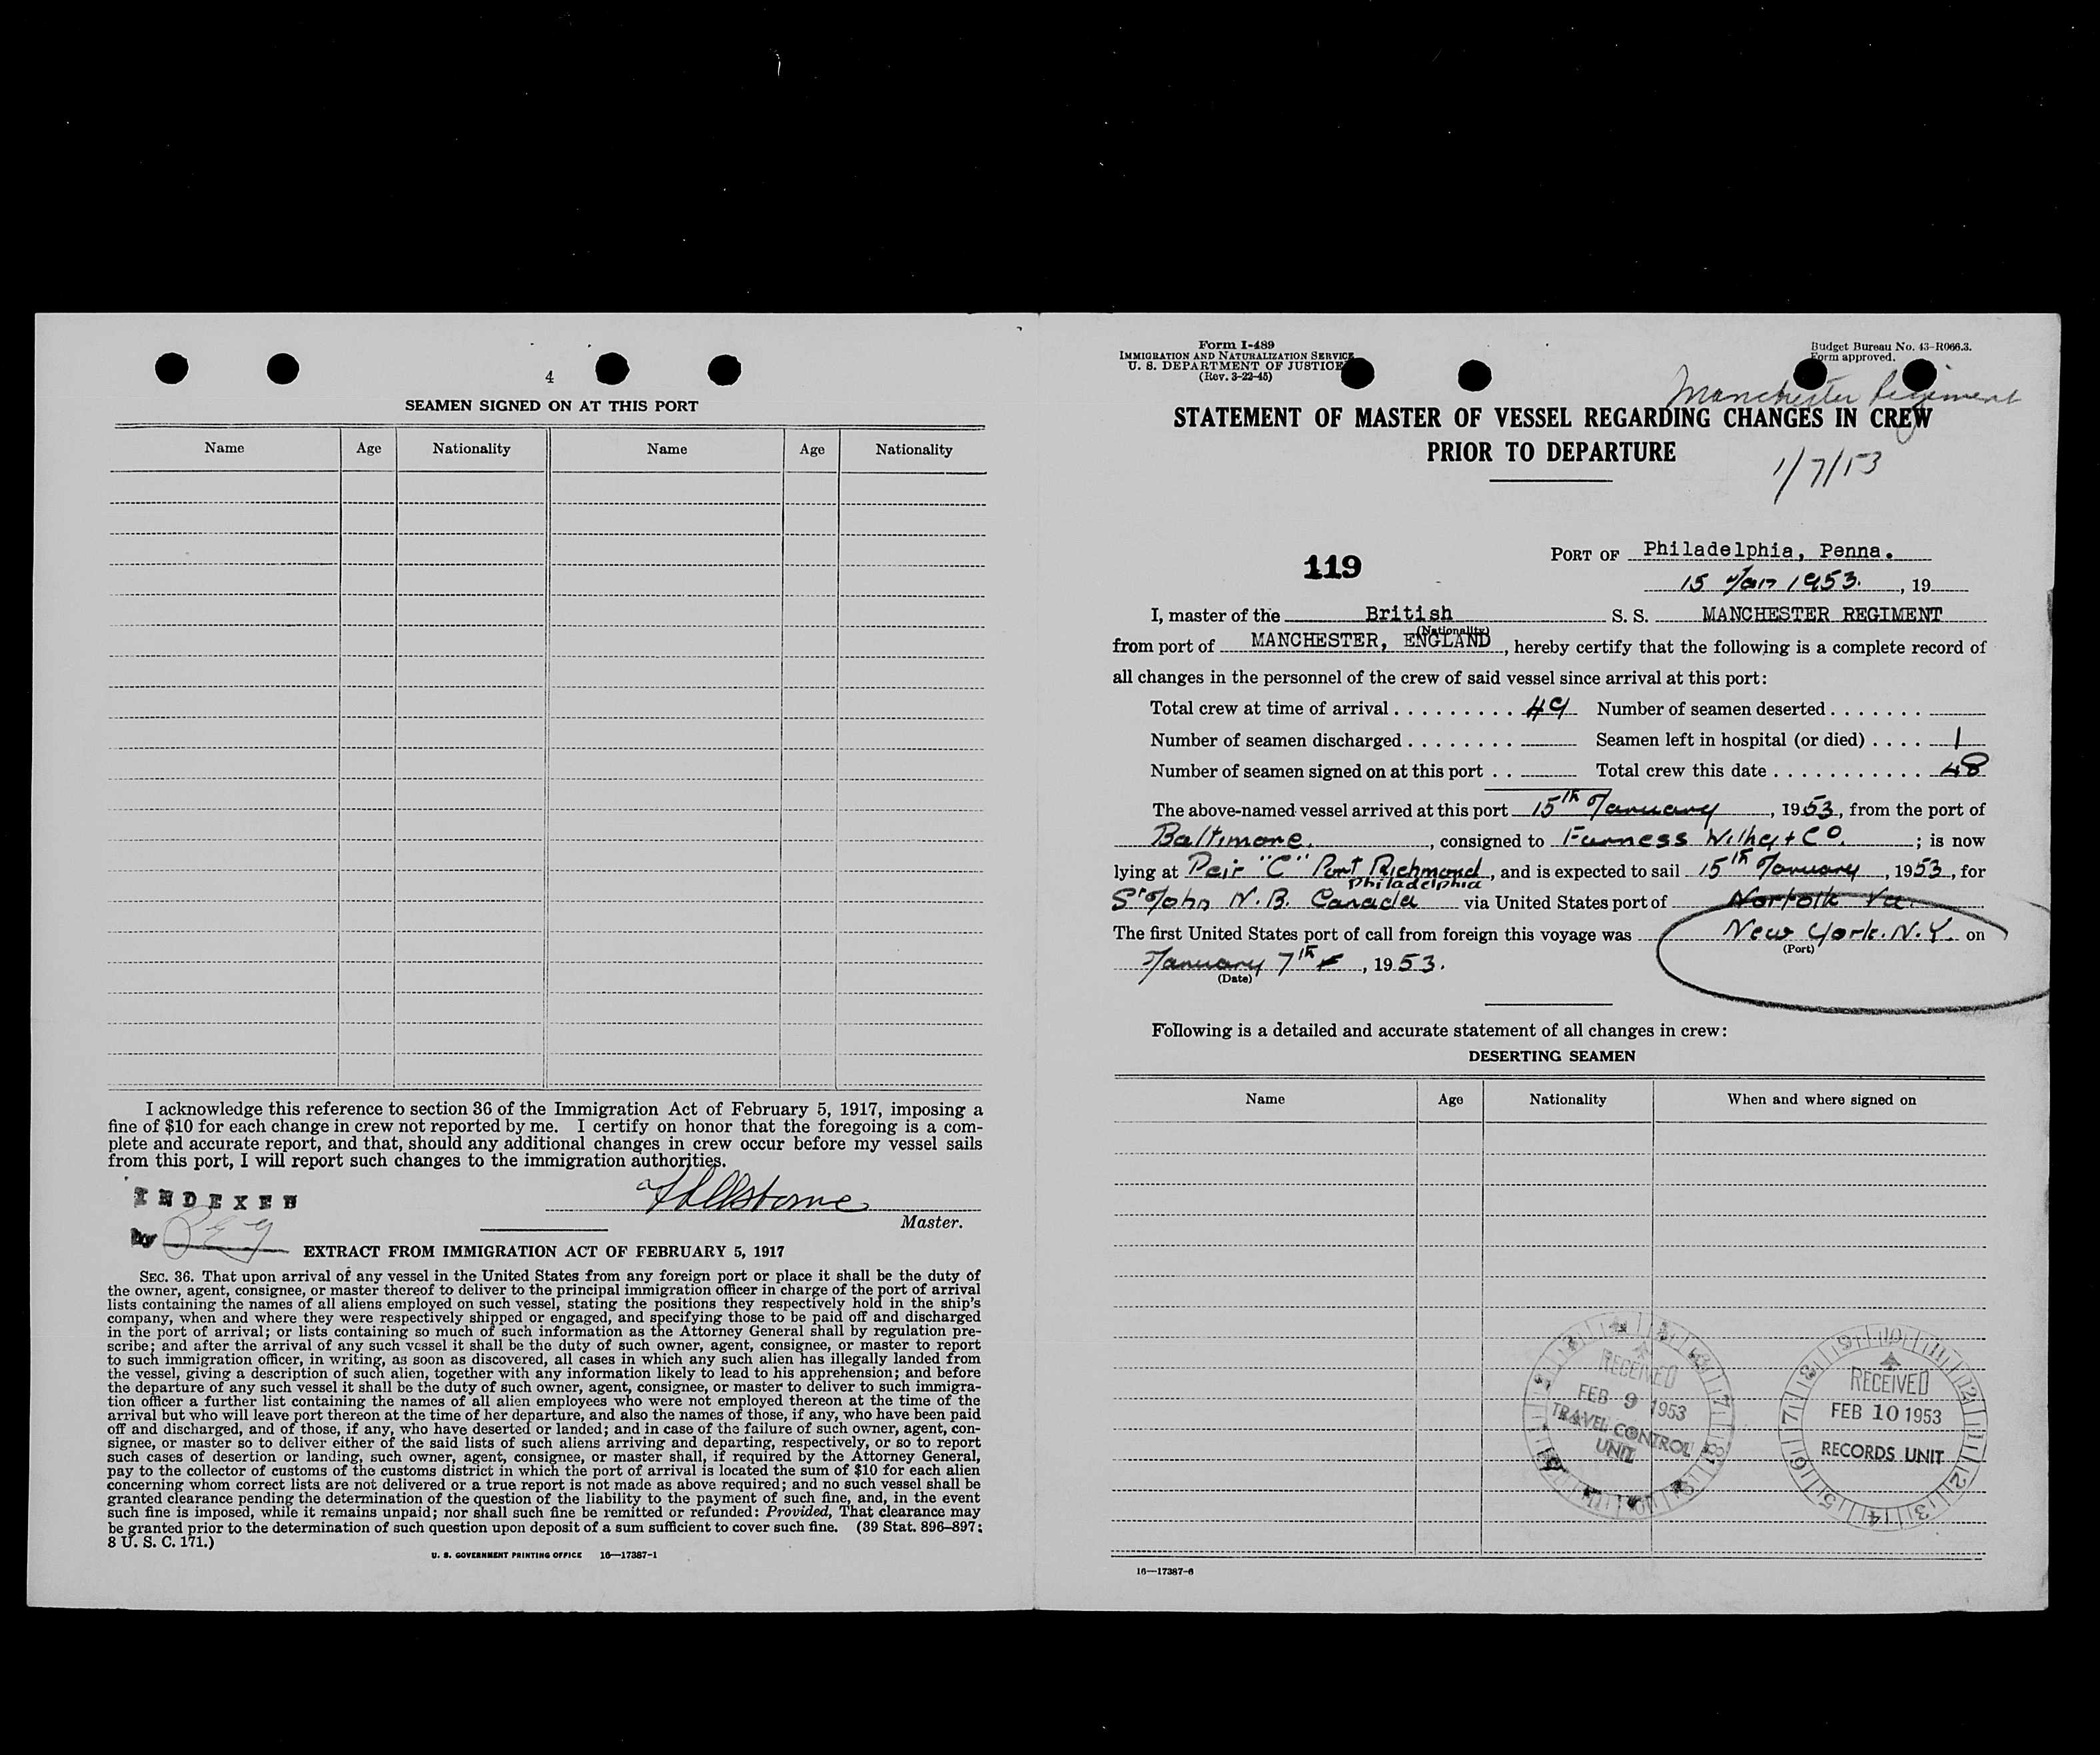 4
SEAMEN SIGNED ON AT THIS PORT
Name Age Nationality Name Age Nationality
I acknowledge this reference to section 36 of the Immigration Act of February 5, 1917, imposing a
fine of $10 for each change in crew not reported by me. I certify on honor that the foregoing is a com-
plete and accurate report, and that, should any additional changes in crew occur before my vessel sails
from this port, I will report such changes to the immigration authorities.
INDEXED
by
Master.
EXTRACT FROM IMMIGRATION ACT OF FEBRUARY 5, 1917
SEC. 36. That upon arrival of any vessel in the United States from any foreign port or place it shall be the duty of
the owner, agent, consignee, or master thereof to deliver to the principal immigration officer in charge of the port of arrival
lists containing the names of all aliens employed on such vessel, stating the positions they respectively hold in the ship's
company, when and where they were respectively shipped or engaged, and specifying those to be paid off and discharged
in the port of arrival; or lists containing so much of such information as the Attorney General shall by regulation pre-
scribe; and after the arrival of any such vessel it shall be the duty of such owner, agent, consignee, or master to report
to such immigration officer, in writing, as soon as discovered, all cases in which any such alien has illegally landed from
the vessel, giving a description of such alien, together with any information likely to lead to his apprehension; and before
the departure of any such vessel it shall be the duty of such owner, agent, consignee, or master to deliver to such immigra-
tion officer a further list containing the names of all alien employees who were not employed thereon at the time of the
arrival but who will leave port thereon at the time of her departure, and also the names of those, if any, who have been paid
off and discharged, and of those, if any, who have deserted or landed; and in case of the failure of such owner, agent, con-
signee, or master so to deliver either of the said lists of such aliens arriving and departing, respectively, or so to report
such cases of desertion or landing, such owner, agent, consignee, or master shall, if required by the Attorney General,
pay to the collector of customs of the customs district in which the port of arrival is located the sum of $10 for each alien
concerning whom correct lists are not delivered or a true report is not made as above required; and no such vessel shall be
granted clearance pending the determination of the question of the liability to the payment of such fine, and, in the event
such fine is imposed, while it remains unpaid; nor shall such fine be remitted or refunded: Provided, That clearance may
be granted prior to the determination of such question upon deposit of a sum sufficient to cover such fine. (39 Stat. 896–897;
8 U. S. C. 171.)
U. S. GOVERNMENT PRINTING OFFICE 16—17387-1
Form I-489
IMMIGRATION AND NATURALIZATION SERVICE
U. S. DEPARTMENT OF JUSTICE
(Rev. 3-22-45)
Budget Bureau No. 43-R066.3.
Form approved.
Manchester Regiment
STATEMENT OF MASTER OF VESSEL REGARDING CHANGES IN CREW
PRIOR TO DEPARTURE
1/7/53
119
PORT OF Philadelphia, Penna.
15 Jan 1953. , 19
I, master of the British S. S. MANCHESTER REGIMENT
(Nationality)
from port of MANCHESTER, ENGLAND, hereby certify that the following is a complete record of
all changes in the personnel of the crew of said vessel since arrival at this port:
Total crew at time of arrival . . . . . . . . . 49 Number of seamen deserted . . . . . . .
Number of seamen discharged . . . . . . . . Seamen left in hospital (or died) . . . . 1
Number of seamen signed on at this port . . Total crew this date . . . . . . . . . . . . 48
The above-named vessel arrived at this port 15th January, 1953, from the port of
Baltimore., consigned to Furness Withy + Co. ; is now
lying at Peir "C" Port Richmond, and is expected to sail 15th January, 1953, for
Philadelphia
St John N.B. Canada via United States port of Norfolk Va.
The first United States port of call from foreign this voyage was New York. N.Y. on
(Port)
January 7th, 1953.
(Date)
Following is a detailed and accurate statement of all changes in crew:
DESERTING SEAMEN
Name Age Nationality When and where signed on
RECEIVED
FEB 9 1953
TRAVEL CONTROL
UNIT
RECEIVED
FEB 10 1953
RECORDS UNIT
16—17387-6